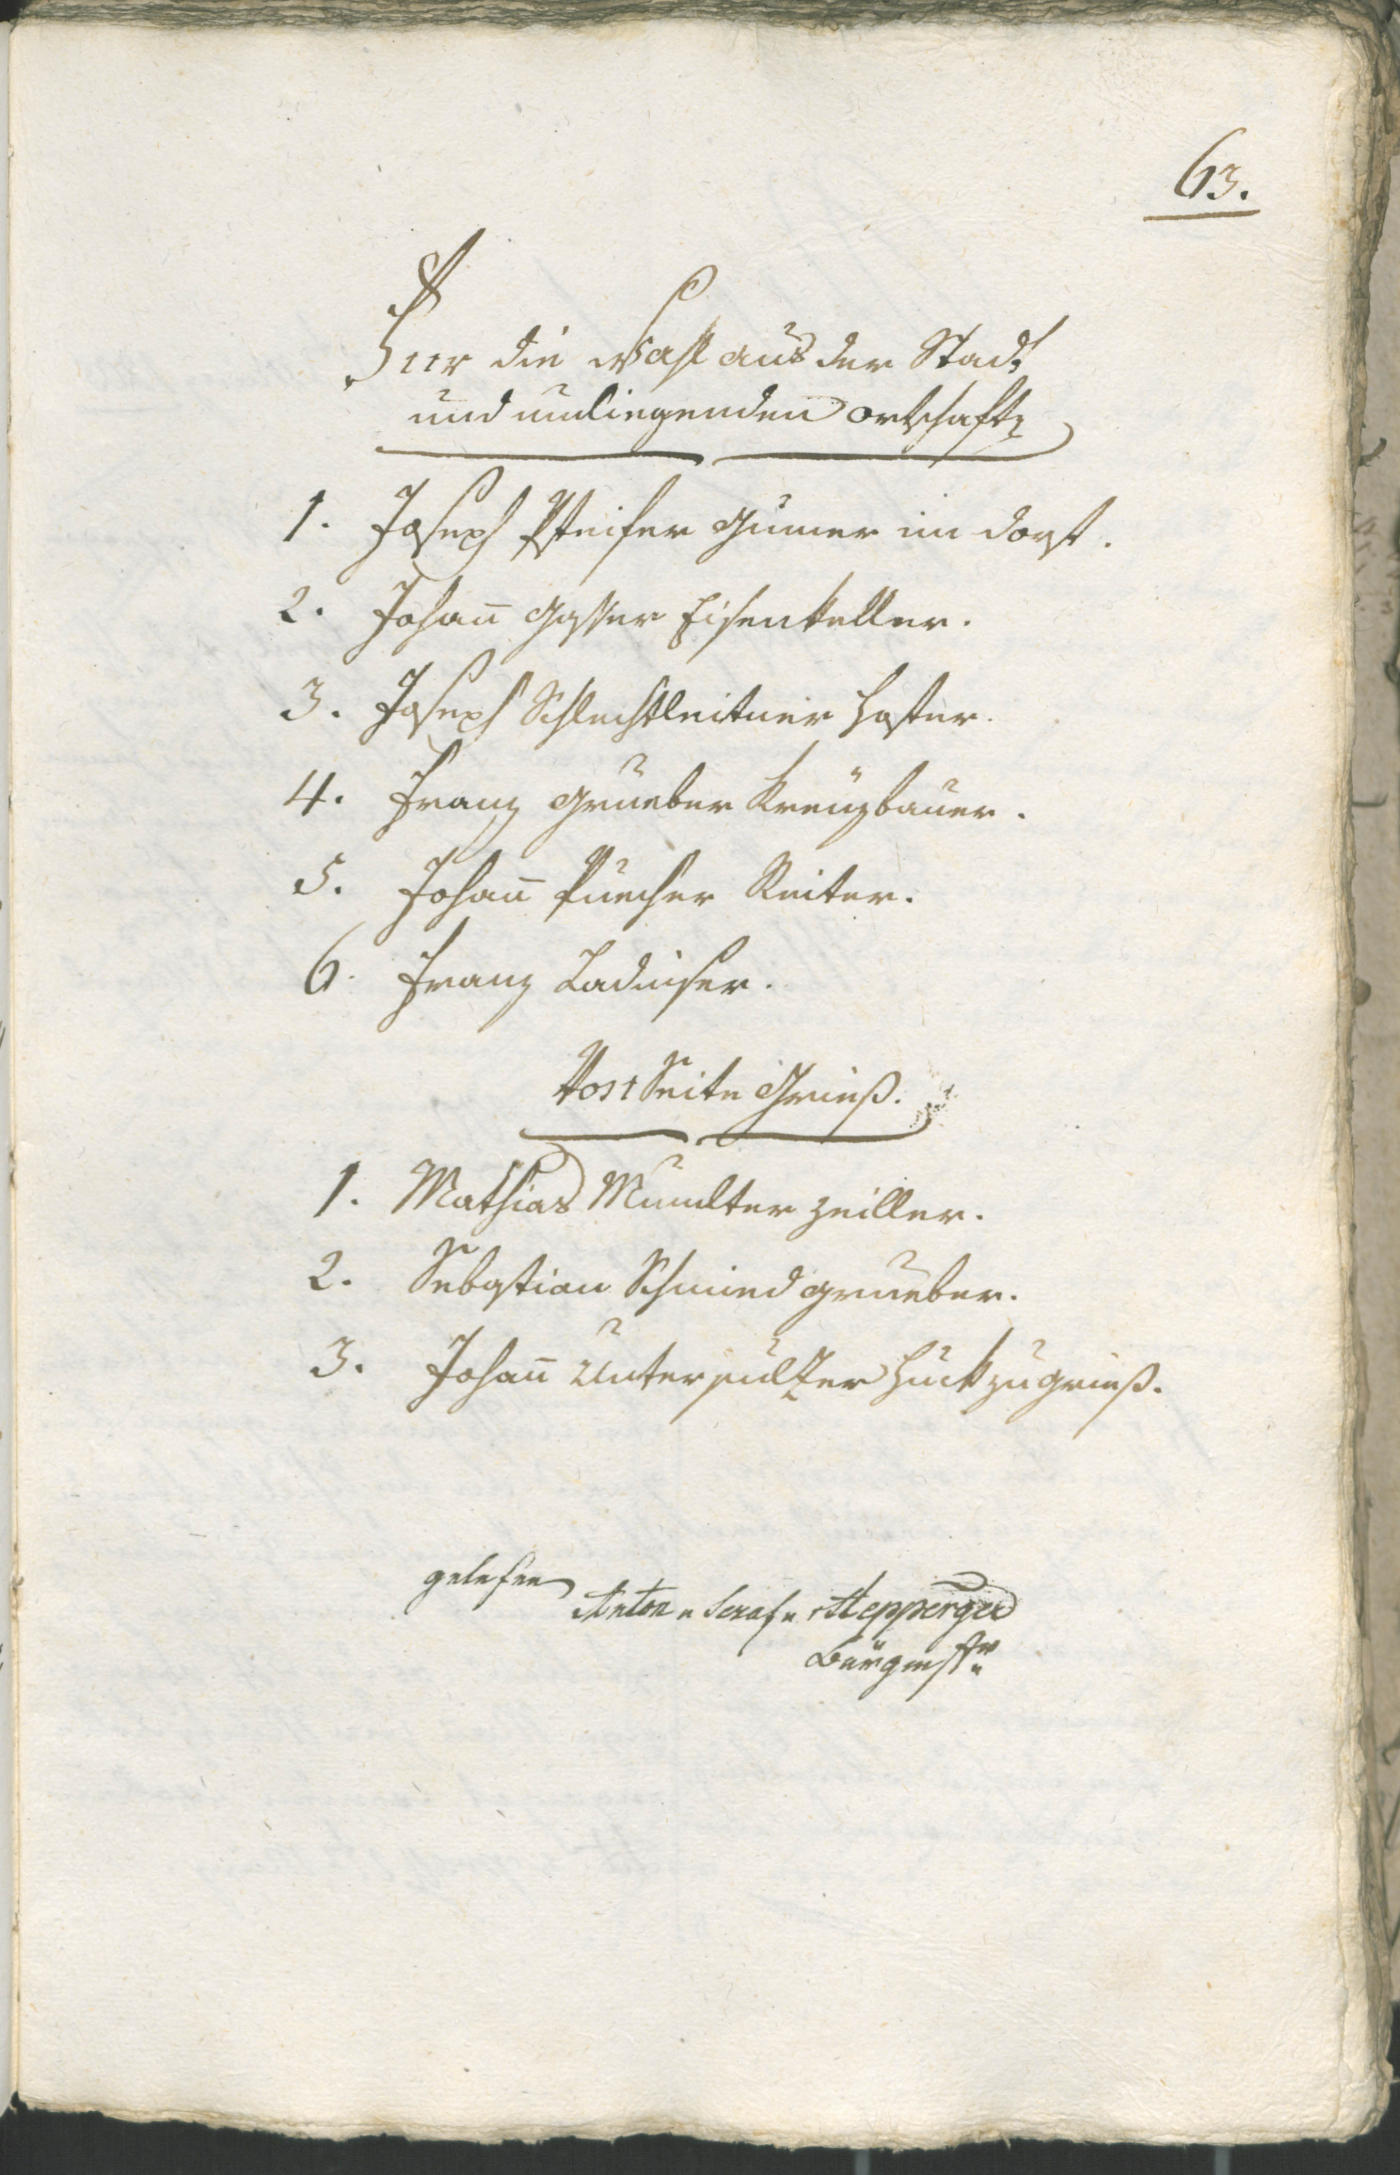 63.
Fur die Wahl aus der Stadt
und umliegenden ortschaftn
1. Joseph Pfeifer Gumer im dorf.
2. Johan̄ Gasser Eisenkeller.
3. Joseph Schlechtleitner Hofer.
4. Franz Grueber Kreuzbauer.
5. Johan̄ Puecher Reiter.
6. Franz Ladinser.
Von Seite Grieß.
1. Mathias Mumelter Zeiller.
2. Sebastian Schmied grueber.
3. Johan̄ Unterpulzer Huck zu grieß.
gelesen
Anton v Hepperger
Bürgmstr